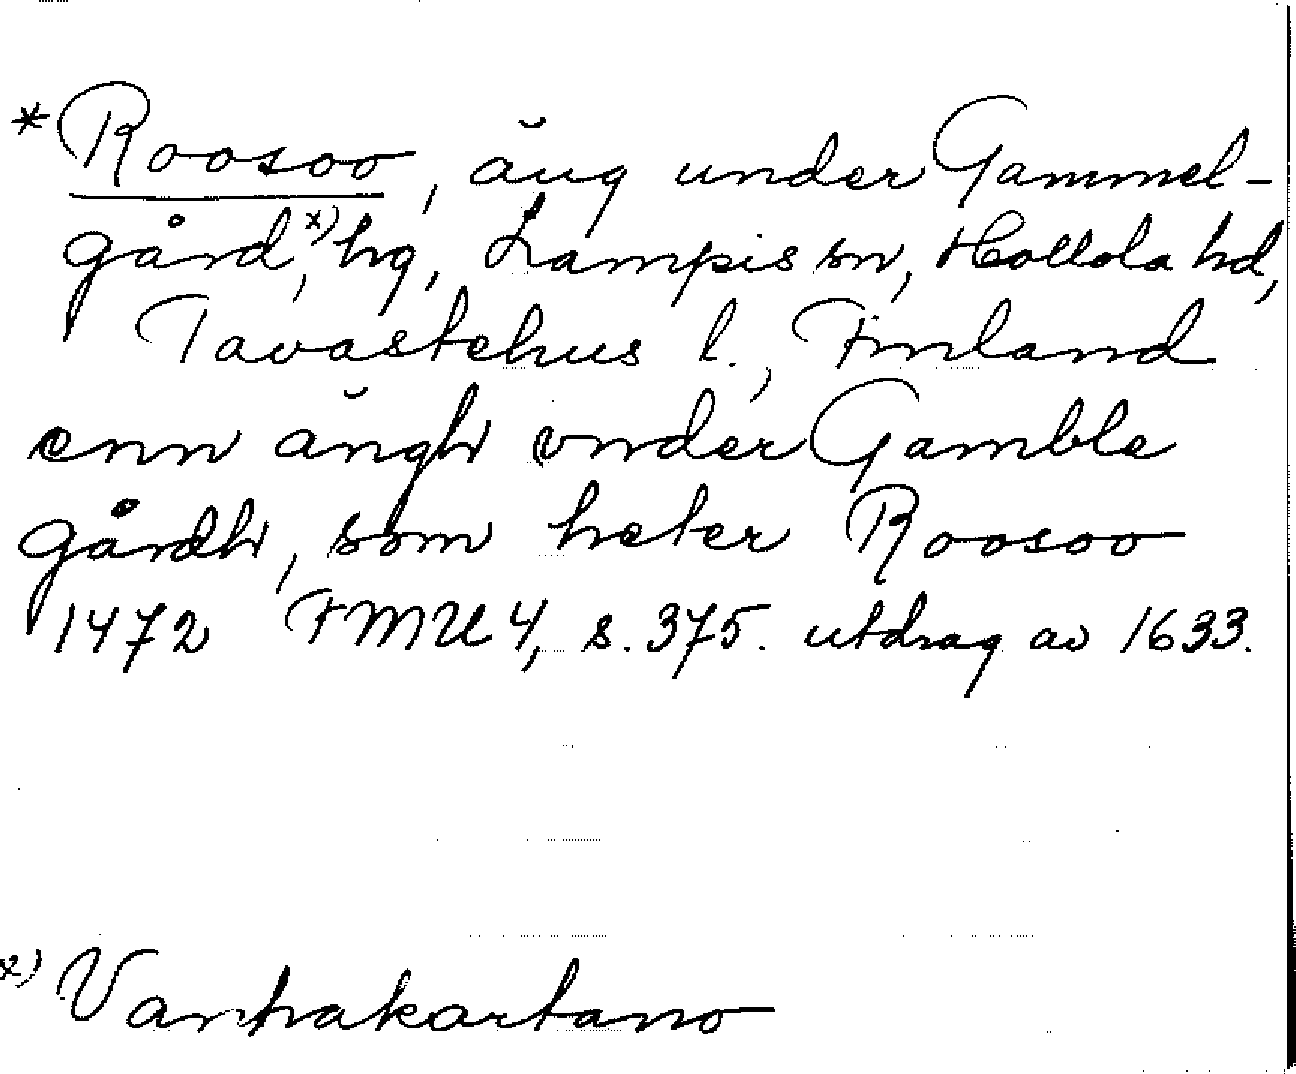 *Roosoo, äng under Gammel-
gård,x) hg, Lampis sn, Hollola hd,
Tavastehus l., Finland
enn ängh vnder Gamble
gårdh, som heter Roosoo
1472 FMU 4, s. 375. utdrag av 1633.
x) Vanhakartano